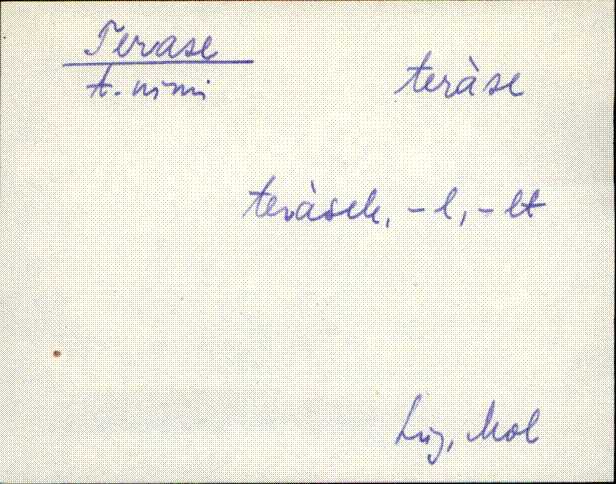 Terase
teràse
t. nimi
teràsele, -l, -lt
Lüg, Mol